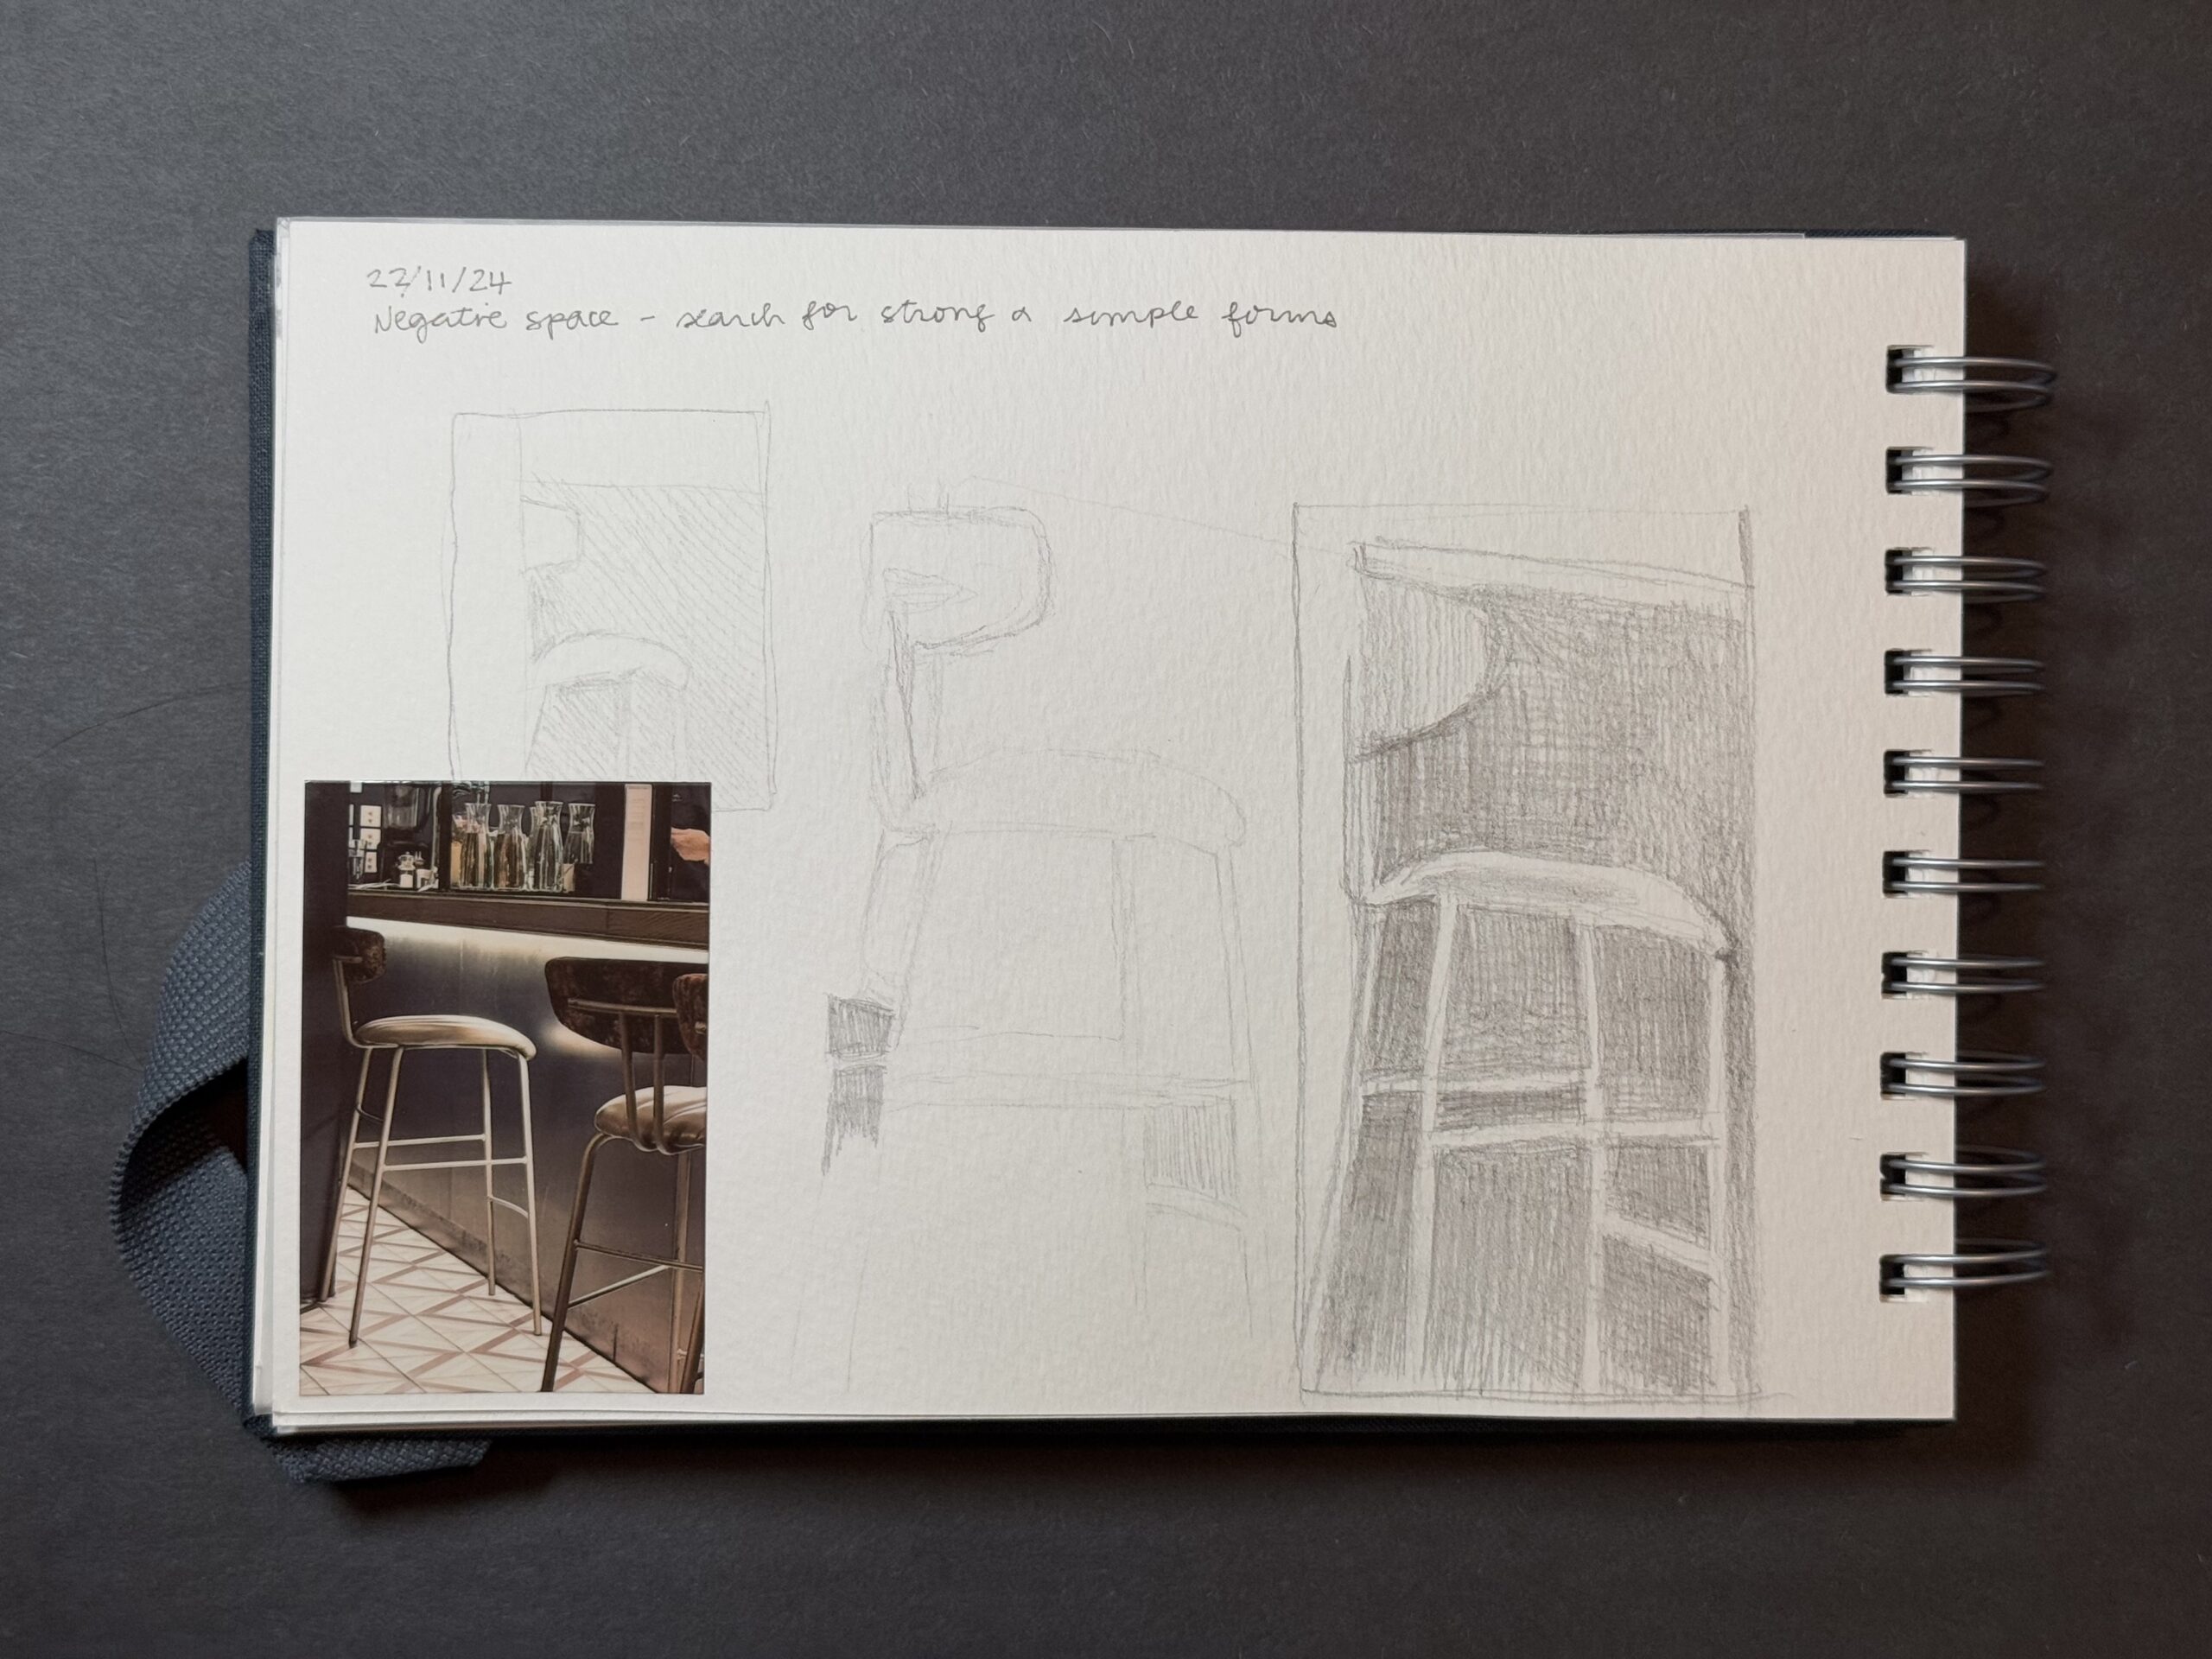 22/11/24
Negative space - search for strong & simple forms